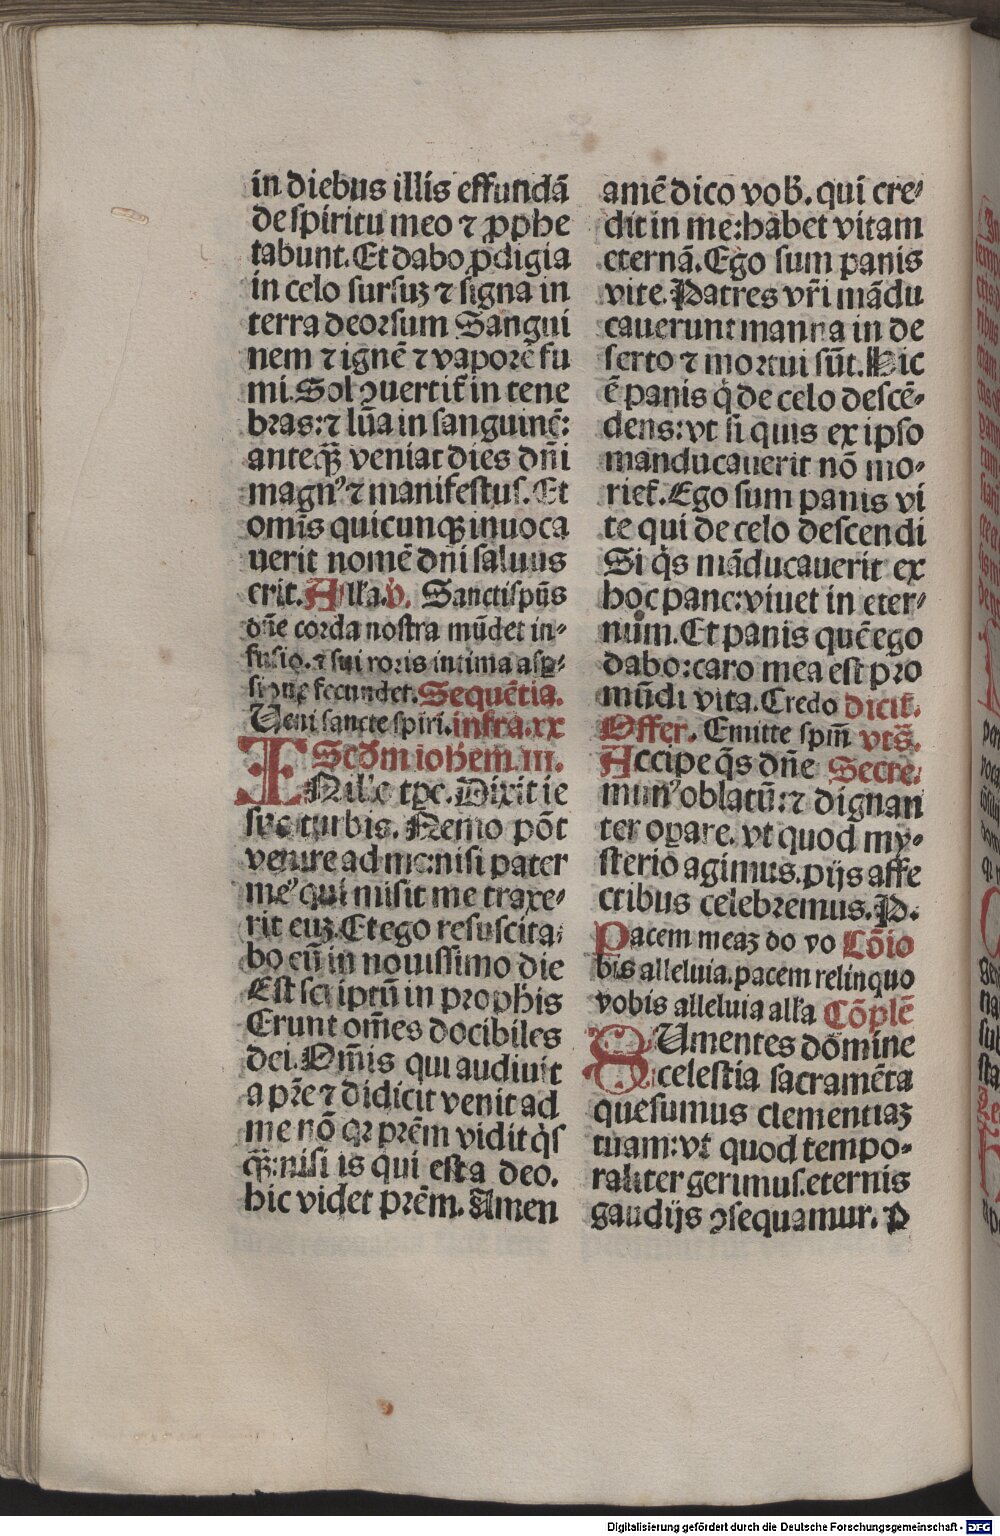 in diebus illis effundā
de spiritu meo ⁊ ꝓphe
tabunt. Et dabo ꝓdigia
in celo sursuꝫ ⁊ signa in
terra deorsum Sangui
nem ⁊ ignē ⁊ vaporē fu
mi. Sol ꝯuertit᷑ in tene
bras: ⁊ lūa in sanguinē:
anteqꝫ̄ veniat dies dn̄i
magnꝰ ⁊ manifestus. Et
omīs quicunqꝫ inuoca
uerit nomē dn̄i saluus
erit. Alľa. v̄. Sanctispūs
dn̄e corda nostra mūdet in-
fusio. ⁊ sui roris intima aspꝑ-
sione fecundet. Sequētia.
Ueni sancte spiri. infra. xx
Scďm ioħem. iii.
IN il'o tꝑe. Dixit ie
sus turbis. Nemo pōt
venire ad me: nisi pater
meꝰ qui misit me traxe-
rit euꝫ. Et ego resuscita-
bo eū in nouissimo die
Est scriptū in prophis
Erunt om̄es docibiles
dei. Om̄is qui audiuit
a pr̄e ⁊ didicit venit ad
me nō qꝛ prēm vidit q̇s
qꝫ̄: nisi is qui est a deo.
hic videt prēm. Amen
amē dico vob̄. qui cre-
dit in me: habet vitam
eternā. Ego sum panis
vite. Patres vr̄i mādu
cauerunt manna in de
serto ⁊ mortui sūt. Hic
ē panis q̇ de celo descē-
dens: vt si quis ex ipso
manducauerit nō mo-
riet᷑. Ego sum panis vi
te qui de celo descendi
Si q̇s māducauerit ex
hoc pane: viuet in eter-
num. Et panis quē ego
dabo: caro mea est pro
mūdi vita. Credo dicit᷑.
Offer. Emitte spm̄ vts̄.
Accipe q̄s dn̄e Secre.
munꝰ oblatū: ⁊ dignan
ter oꝑare. vt quod my-
sterio agimus. pijs affe
ctibus celebremus. P.
Pacem meaꝫ do vo Cōio
bis alleluia. pacem relinquo
vobis alleluia alľa Cōplē
SUmentes domine
celestia sacramēta
quesumus clementiaꝫ
tuam: vt quod tempo-
raliter gerimus. eternis
gaudijs ꝯsequamur. P
Digitalisierung gefördert durch die Deutsche Forschungsgemeinschaft - DFG